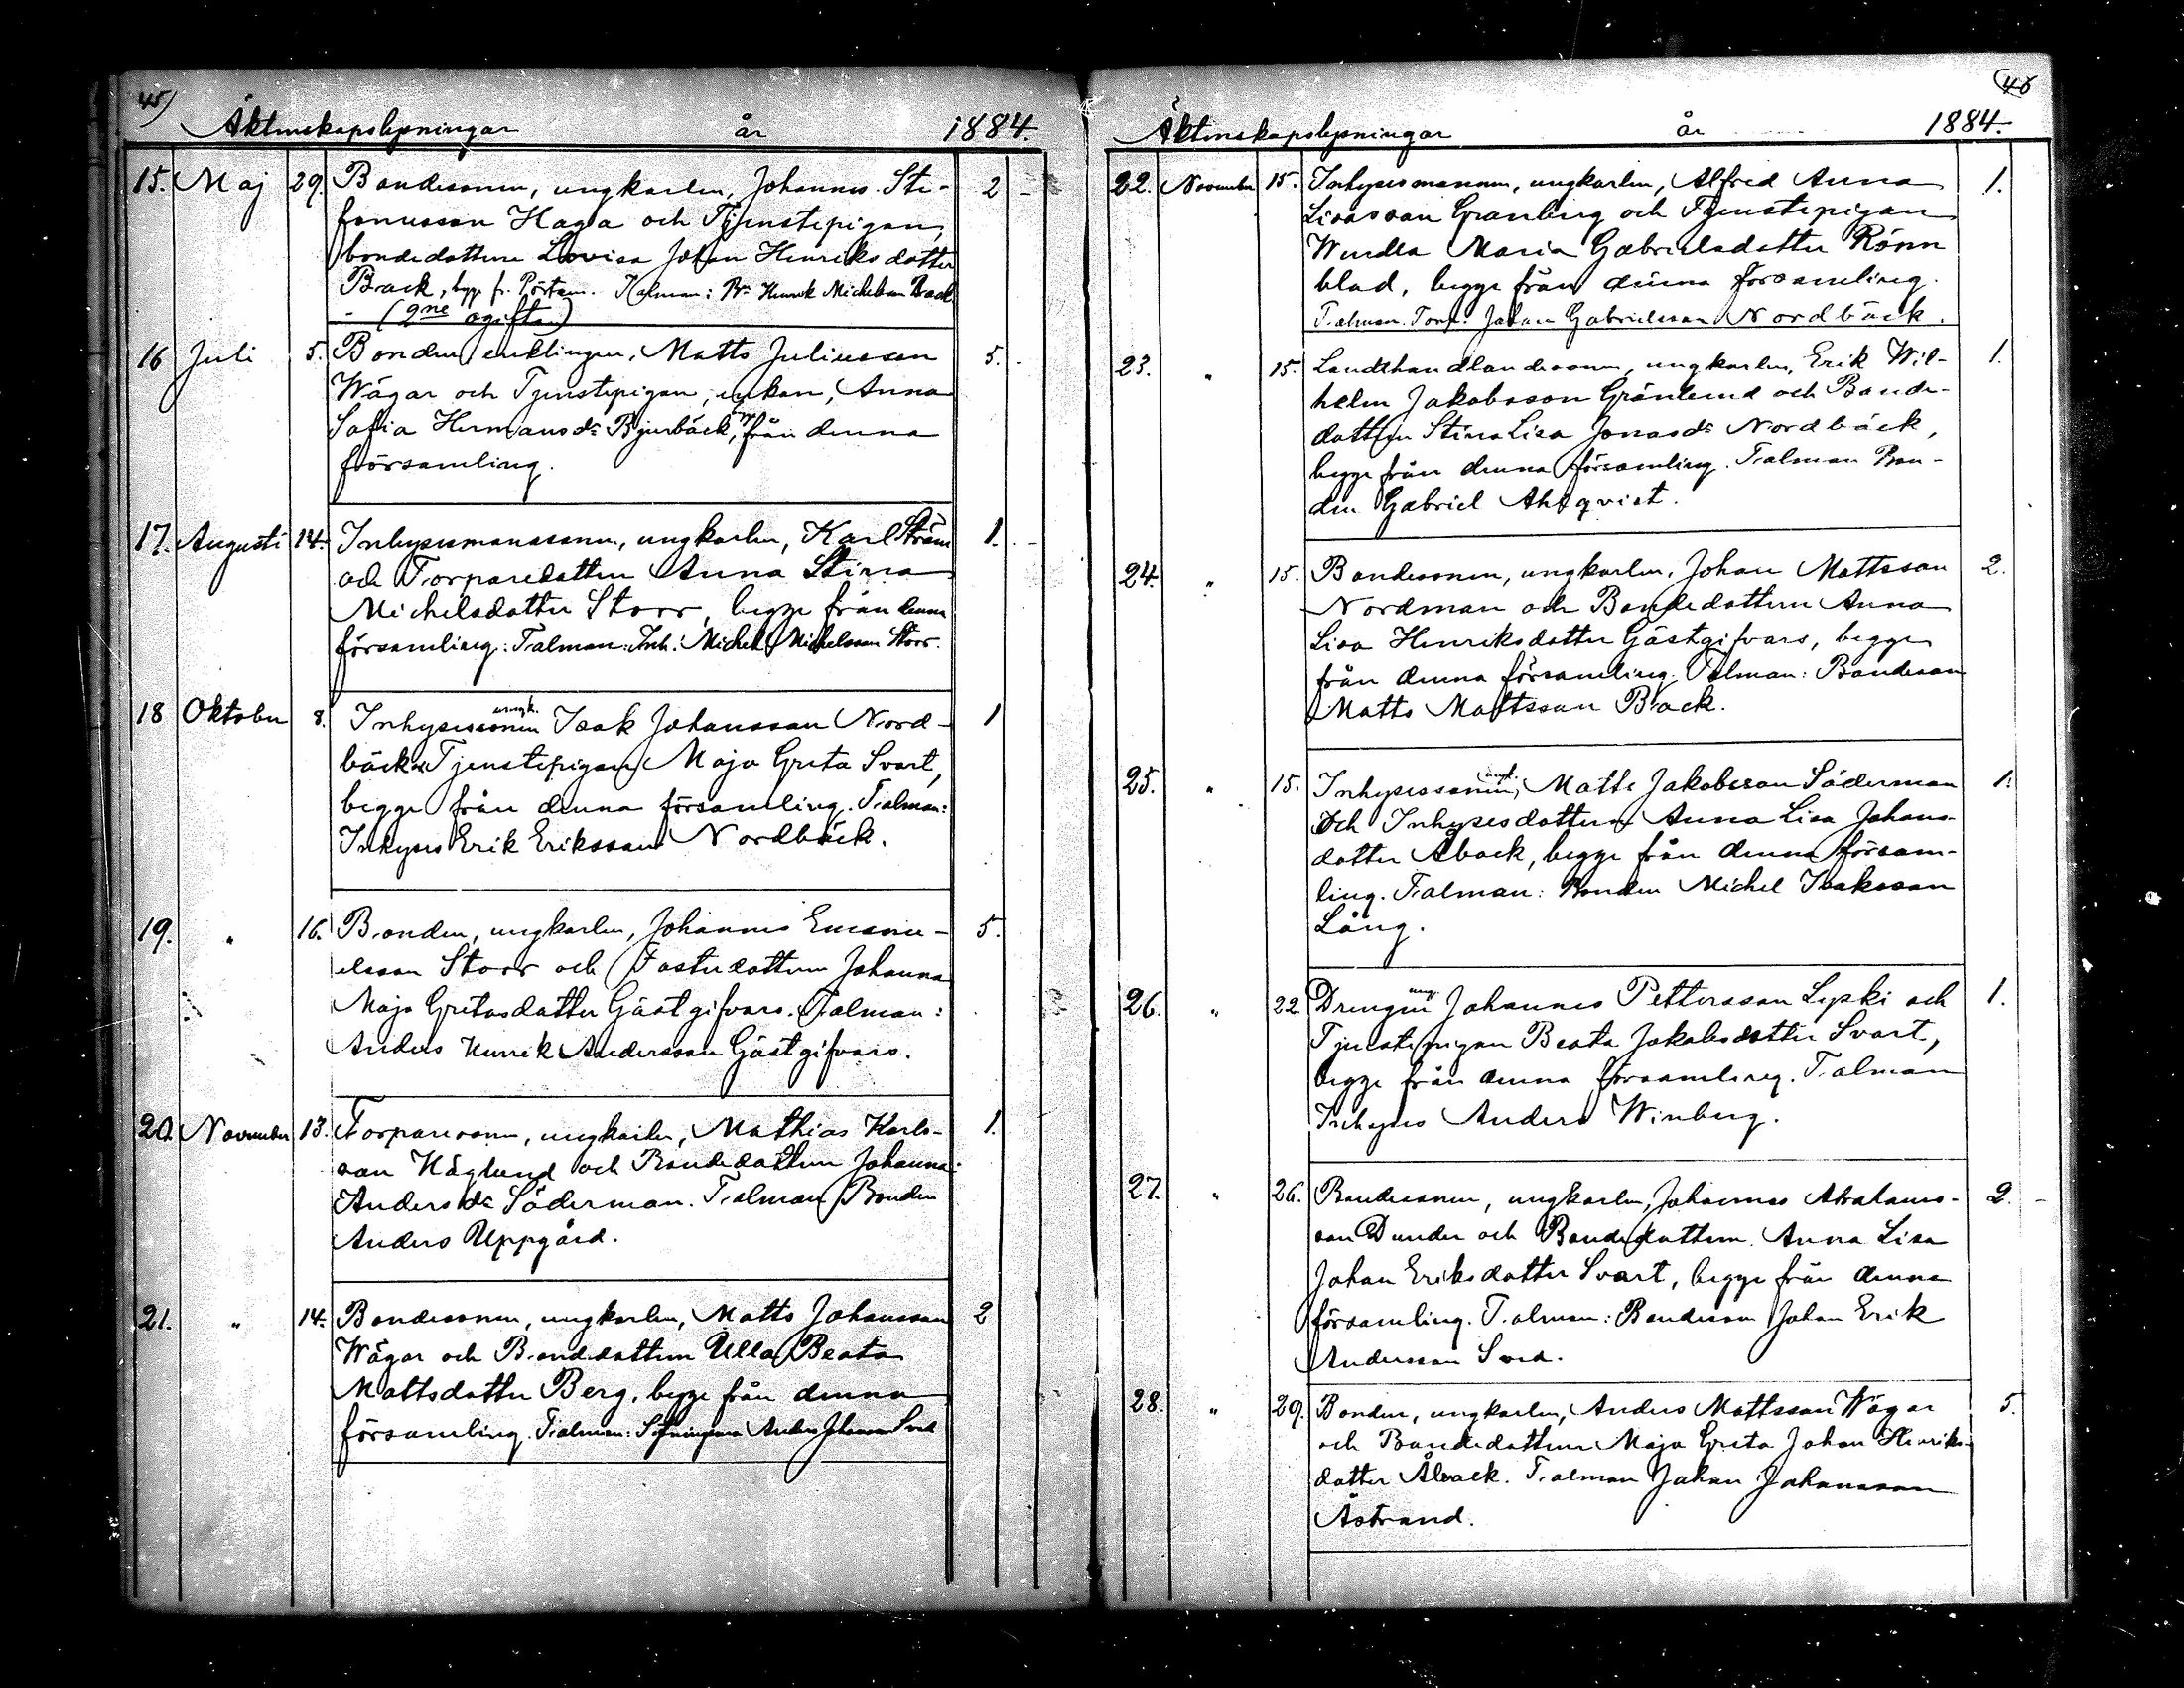 45)
Äktenskapslysningar år 1884.
15. Maj 29. Bondesonen, ungkarlen, Johannes Ste- 2 -
fanusson Haga och Tjenstepigan,
bondedottern Lovisa Johan Henriksdotter
Back, begge fr. Pörtom. Talman: Bn Henrik Michelsson Back
- (2ne ogifta)
16 Juli 5. Bonden, enklingen, Matts Juliusson 5.
Wägar och Tjenstepigan, enkan, Anna
Sofia Hermansdr Bjurbäck, från denna
församling.
17. Augusti 14. Inhysesmanssonen, ungkarlen, Karl Ström 1. -
och Torparedottern Anna Stina
Michelsdotter Storr, begge från denna
församling: Talman: Inh: Michel Michelsson Storr.
18 Oktober 8. Inhysessonen ungk. Isak Johansson Nord- 1
bäck o Tjenstepigan Maja Greta Svart,
begge från denna församling. Talman:
Inhyses Erik Eriksson Nordbäck.
19. " 16. Bonden, ungkarlen, Johannes Emanu- 5.
elsson Storr och Fosterdottern Johanna
Maja Gretasdotter Gästgifvars. Talman:
Anders Henrik Andersson Gästgifvars.
20. November 13. Torparesonen, ungkarlen, Mathias Karls- 1.
son Häglund och Bondedottern Johanna
Anders dr Söderman. Talman Bonden
Anders Uppgård.
21. " 14. Bondesonen, ungkarlen, Matts Johansson 2
Wägar och Bondedottern Ulla Beata
Mattsdotter Berg, begge från denna
församling. Talman: Anders Johansson Sved
46
Äktenskapslysningar år 1884.
22. November 15. Inhysesmannen, ungkarlen, Alfred Anna 1.
Lisasson Granberg och Tjenstepigan
Wendla Maria Gabrielsdotter Rönn
blad, begge från denna församling.
Talman. Torp: Johan Gabrielsson Nordbäck.
23. " 15. Landthandlandesonen, ungkarlen, Erik Wil- 1.
helm Jakobsson Grönlund och Bonde-
dottern Stina Lisa Jonasdr Nordbäck,
begge från denna församling. Talman Bon-
den Gabriel Ahlqvist.
24. " 15. Bondesonen, ungkarlen, Johan Mattsson 2.
Nordman och Bondedottern Anna
Lisa Henriksdotter Gästgifvars, begge
från denna församling. Talman: Bondeson
Matts Mattsson Back.
25. " 15. Inhysessonen, ungk. Matts Jakobsson Söderman 1.
och Inhysesdottern Anna Lisa Johans-
dotter Åback, begge från denna försam-
ling. Talman: Bonden Michel Isaksson
Lång.
26. " 22. Drengen ung. Johannes Pettersson Lyski och 1.
Tjenstepigan Beata Jakobsdotter Svart,
begge från denna församling. Talman
Inhyses Anders Winberg.
27. " 26. Bondesonen, ungkarlen, Johannes Abrahams- 2. -
son Dunder och Bondedottern Anna Lisa
Johan Eriksdotter Svart, begge från denna
församling. Talman: Bondeson Johan Erik
Andersson Sved.
28. " 29. Bonden, ungkarlen, Anders Mattsson Wägar 5.
och Bondedottern Maja Greta Johan Henriks-
dotter Åback. Talman Johan Johansson
Åstrand.